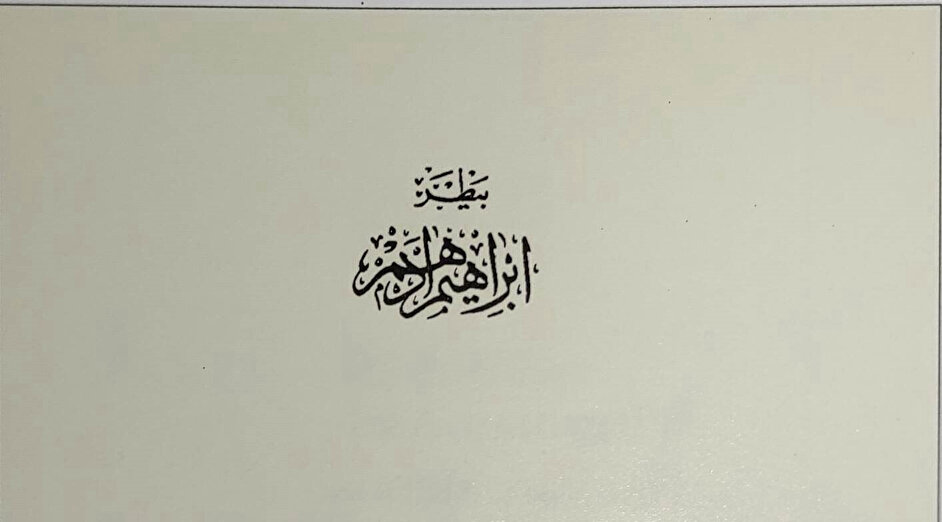 بيطر
ابراهيم ادهم